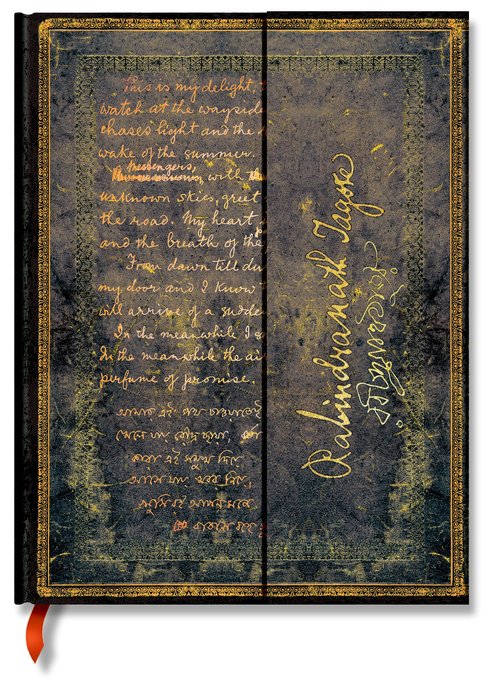 This is my delight,
watch at the wayside
chases light and the
wake of the summer.
Messengers,
with
unknown skies, greet
the road. My heart
and the breath of the
From dawn till du
my door and I know
will arrive of a sudde
In the meanwhile I s
In the meanwhile the ai
perfume of promise.
আমার এই পথ চাওয়াতেই
খেলে যায় রৌদ্র ছায়া,
কারা এই সমুখ দিয়ে
আসে যায়, খবর নিয়ে,
খুশি রই আপন মনে
বাতাস বহে
Rabindranath Tagore